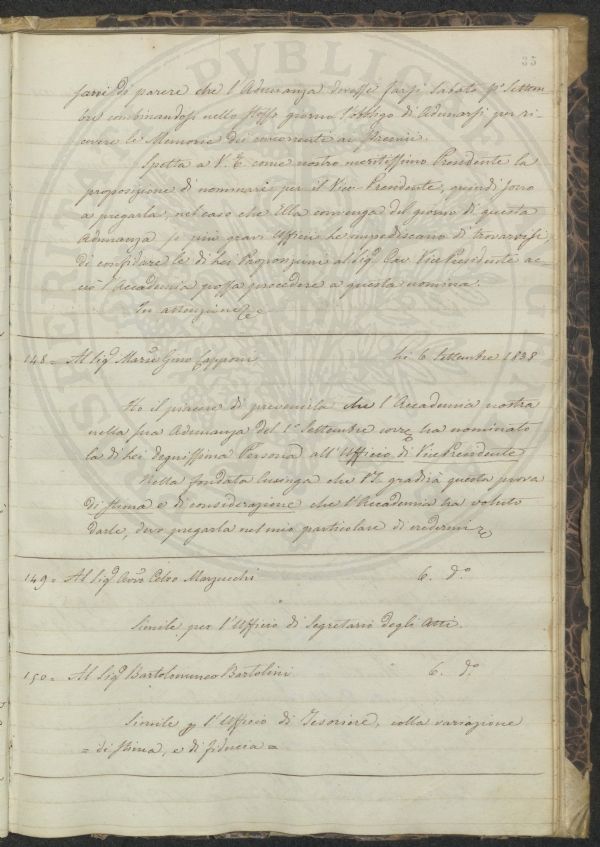 35
farmi di parere che l'Adunanza dovesse farsi Sabato p.º Settem-
bre combinandosi nello stesso giorno l'obbligo di Adunarsi per ri-
cevere le Memorie dei concorrenti ai Premii.
Spetta a V. E. come nostro meritissimo Presidente la
proposizione di nominare per il Vice-Presidente, quindi sono
a pregarla, nel caso che Ella convenga del giorno di questa
Adunanza se più gravi Ufficii le impediscano di trovarvisi
di confidare le di Lei Proposizioni al Sig.r Cav. Vice Presidente ac-
ciò l'Accademia possa procedere a questa nomina.
In attenzione
148= Al Sig.r March.e Gino Capponi li 6 Settembre 1838
Ho il piacere di prevenirla che l'Accademia nostra
nella sua Adunanza del 1º Settembre corr.e ha nominato
la di Lei degnissima Persona all'Ufficio di Vice Presidente
Nella fondata lusinga che V.S. gradirà questa prova
di stima e di considerazione che l'Accademia ha voluto
darle, devo pregarla nel mio particolare di credermi
149= Al Sig.r Avv.o Celso Marzucchi 6. d.º
Simile per l'Ufficio di Segretario degli Atti.
150= Al Sig.r Bartolommeo Bartolini 6. d.º
Simile p l'Ufficio di Tesoriere, colla variazione
= di stima, e di fiducia =